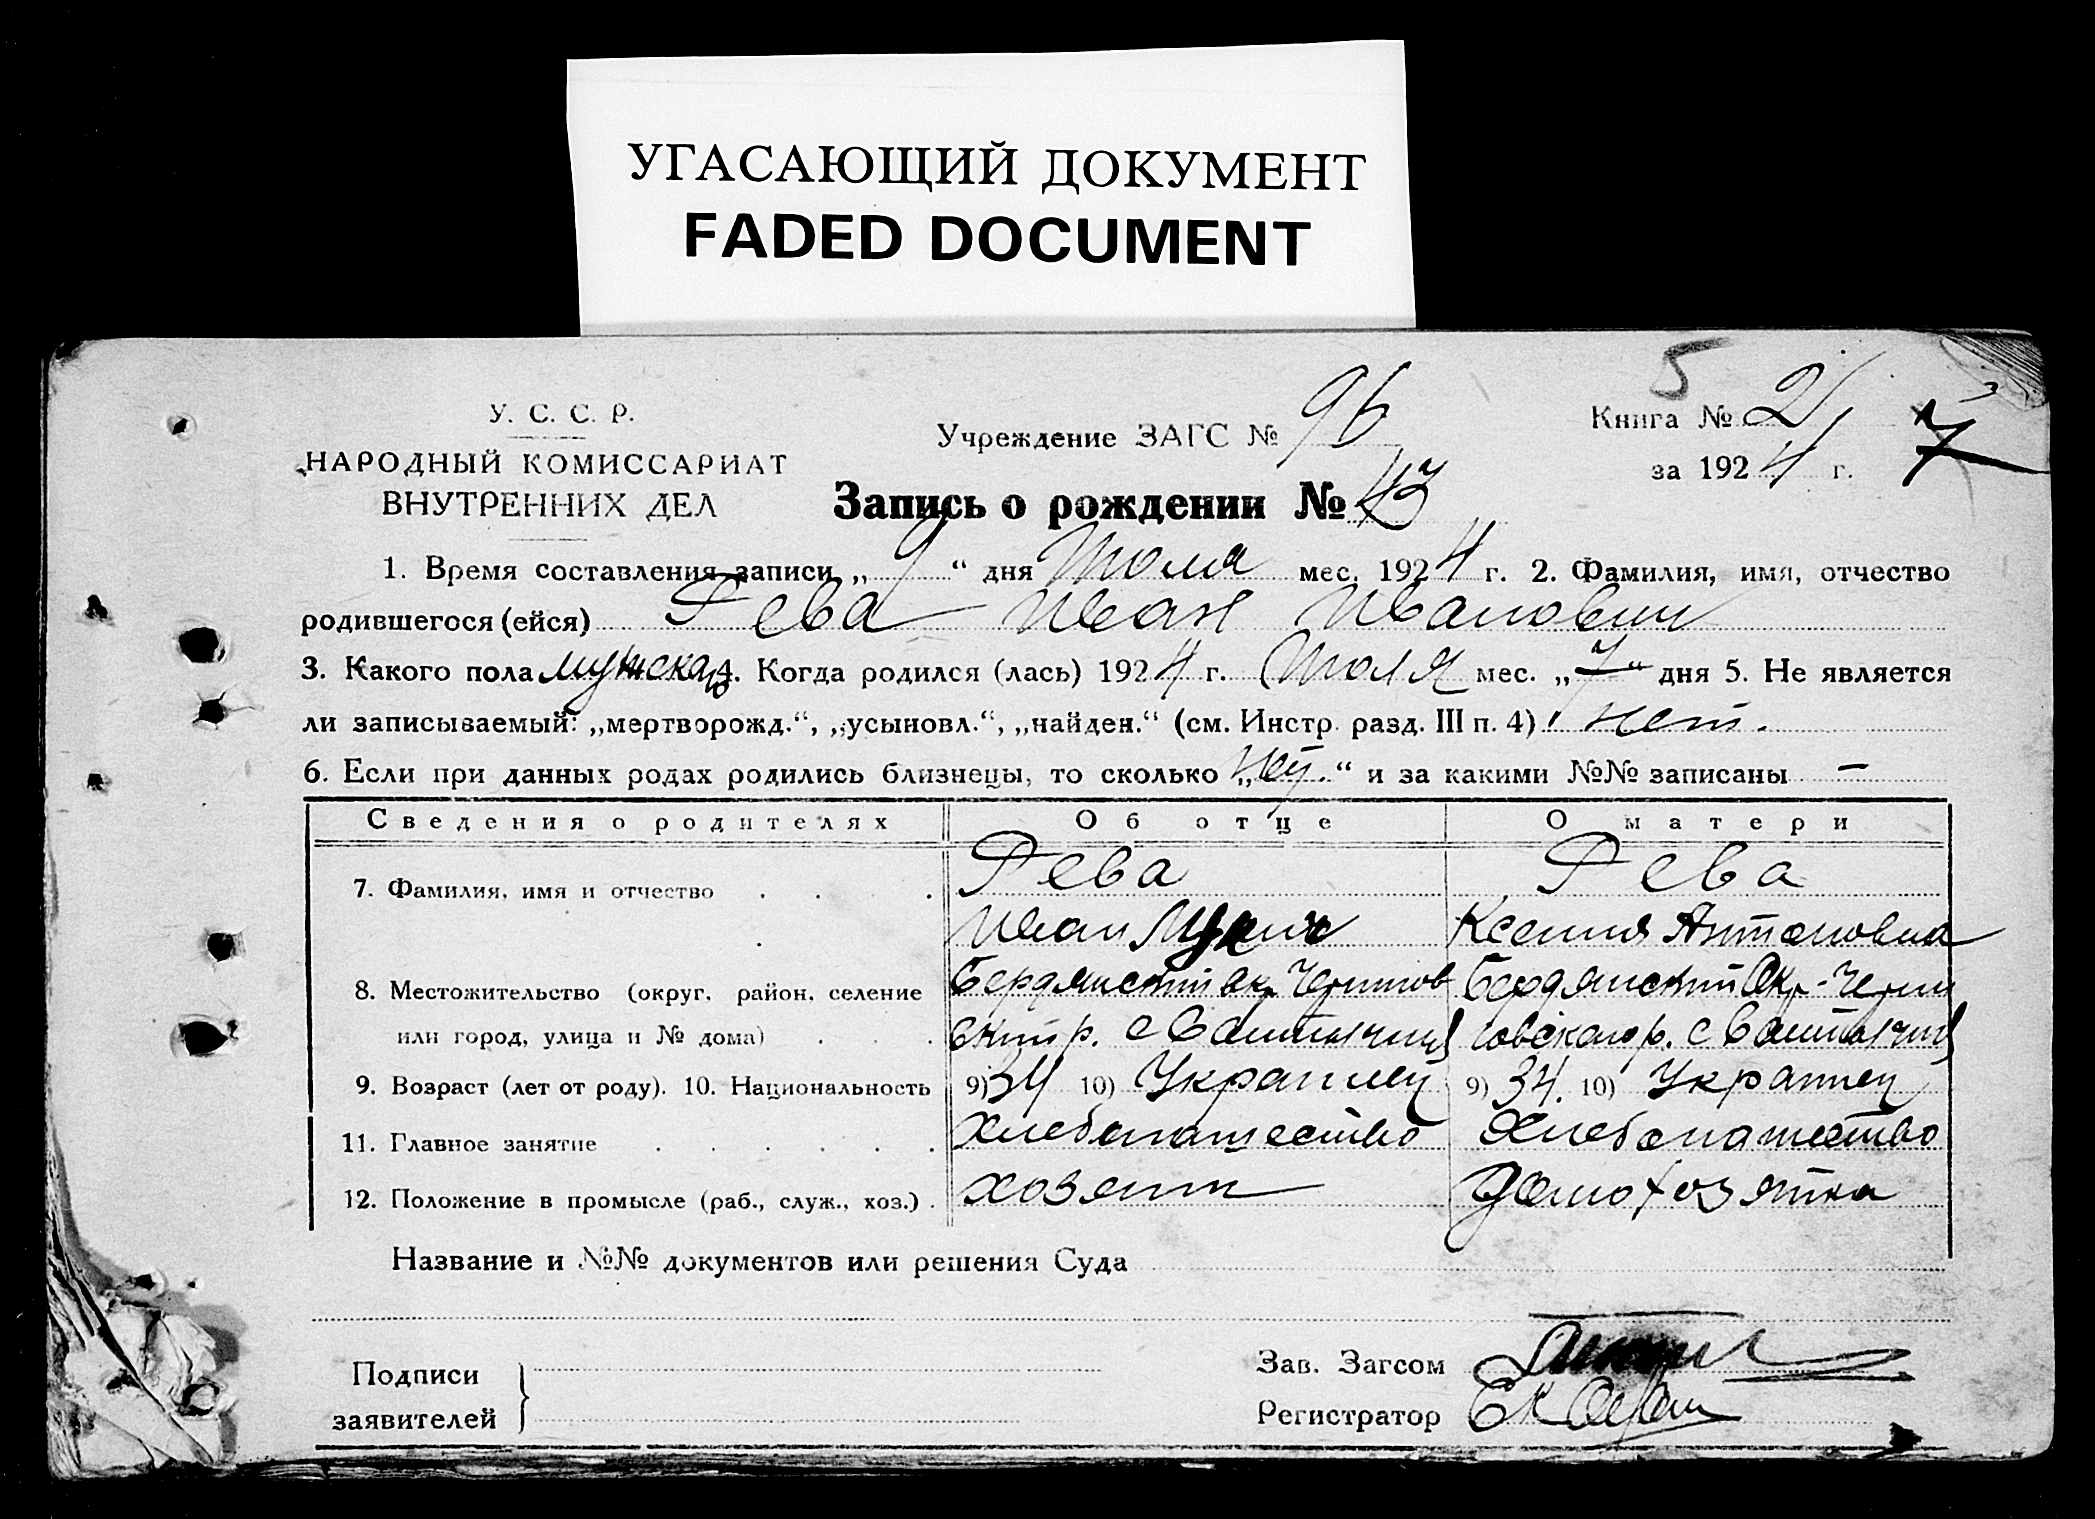 УГАСАЮЩИЙ ДОКУМЕНТ
FADED DOCUMENT
5
У. С. С. Р.
НАРОДНЫЙ КОМИССАРИАТ
ВНУТРЕННИХ ДЕЛ
Учреждение ЗАГС № 96
Книга № 2
за 1924 г.
7
Запись о рождении № 43
1. Время составления записи „9“ дня Июля мес. 1924 г. 2. Фамилия, имя, отчество
родившегося (ейся) Рева Иван Иванович
3. Какого пола мужска 4. Когда родился (лась) 1924 г. Июля мес. „7“ дня 5. Не является
ли записываемый: „мертворожд.“, „усыновл.“, „найден.“ (см. Инстр. разд. III п. 4) нет.
6. Если при данных родах родились близнецы, то сколько „ “ и за какими №№ записаны —
Сведения о родителях Об отце О матери
7. Фамилия, имя и отчество Рева Рева
Иван Ксения Антоновна
8. Местожительство (округ, район, селение Бердянский ок Чернигов Бердянский Окр. Черни
или город, улица и № дома) ский р. с говского р. с
9. Возраст (лет от роду). 10. Национальность 9) 34 10) Украинец 9) 34. 10) Украинец
11. Главное занятие Хлебопашество Хлебопашество
12. Положение в промысле (раб., служ., хоз.) хозяин домохозяйка
Название и №№ документов или решения Суда
Подписи
заявителей
Зав. Загсом
Регистратор